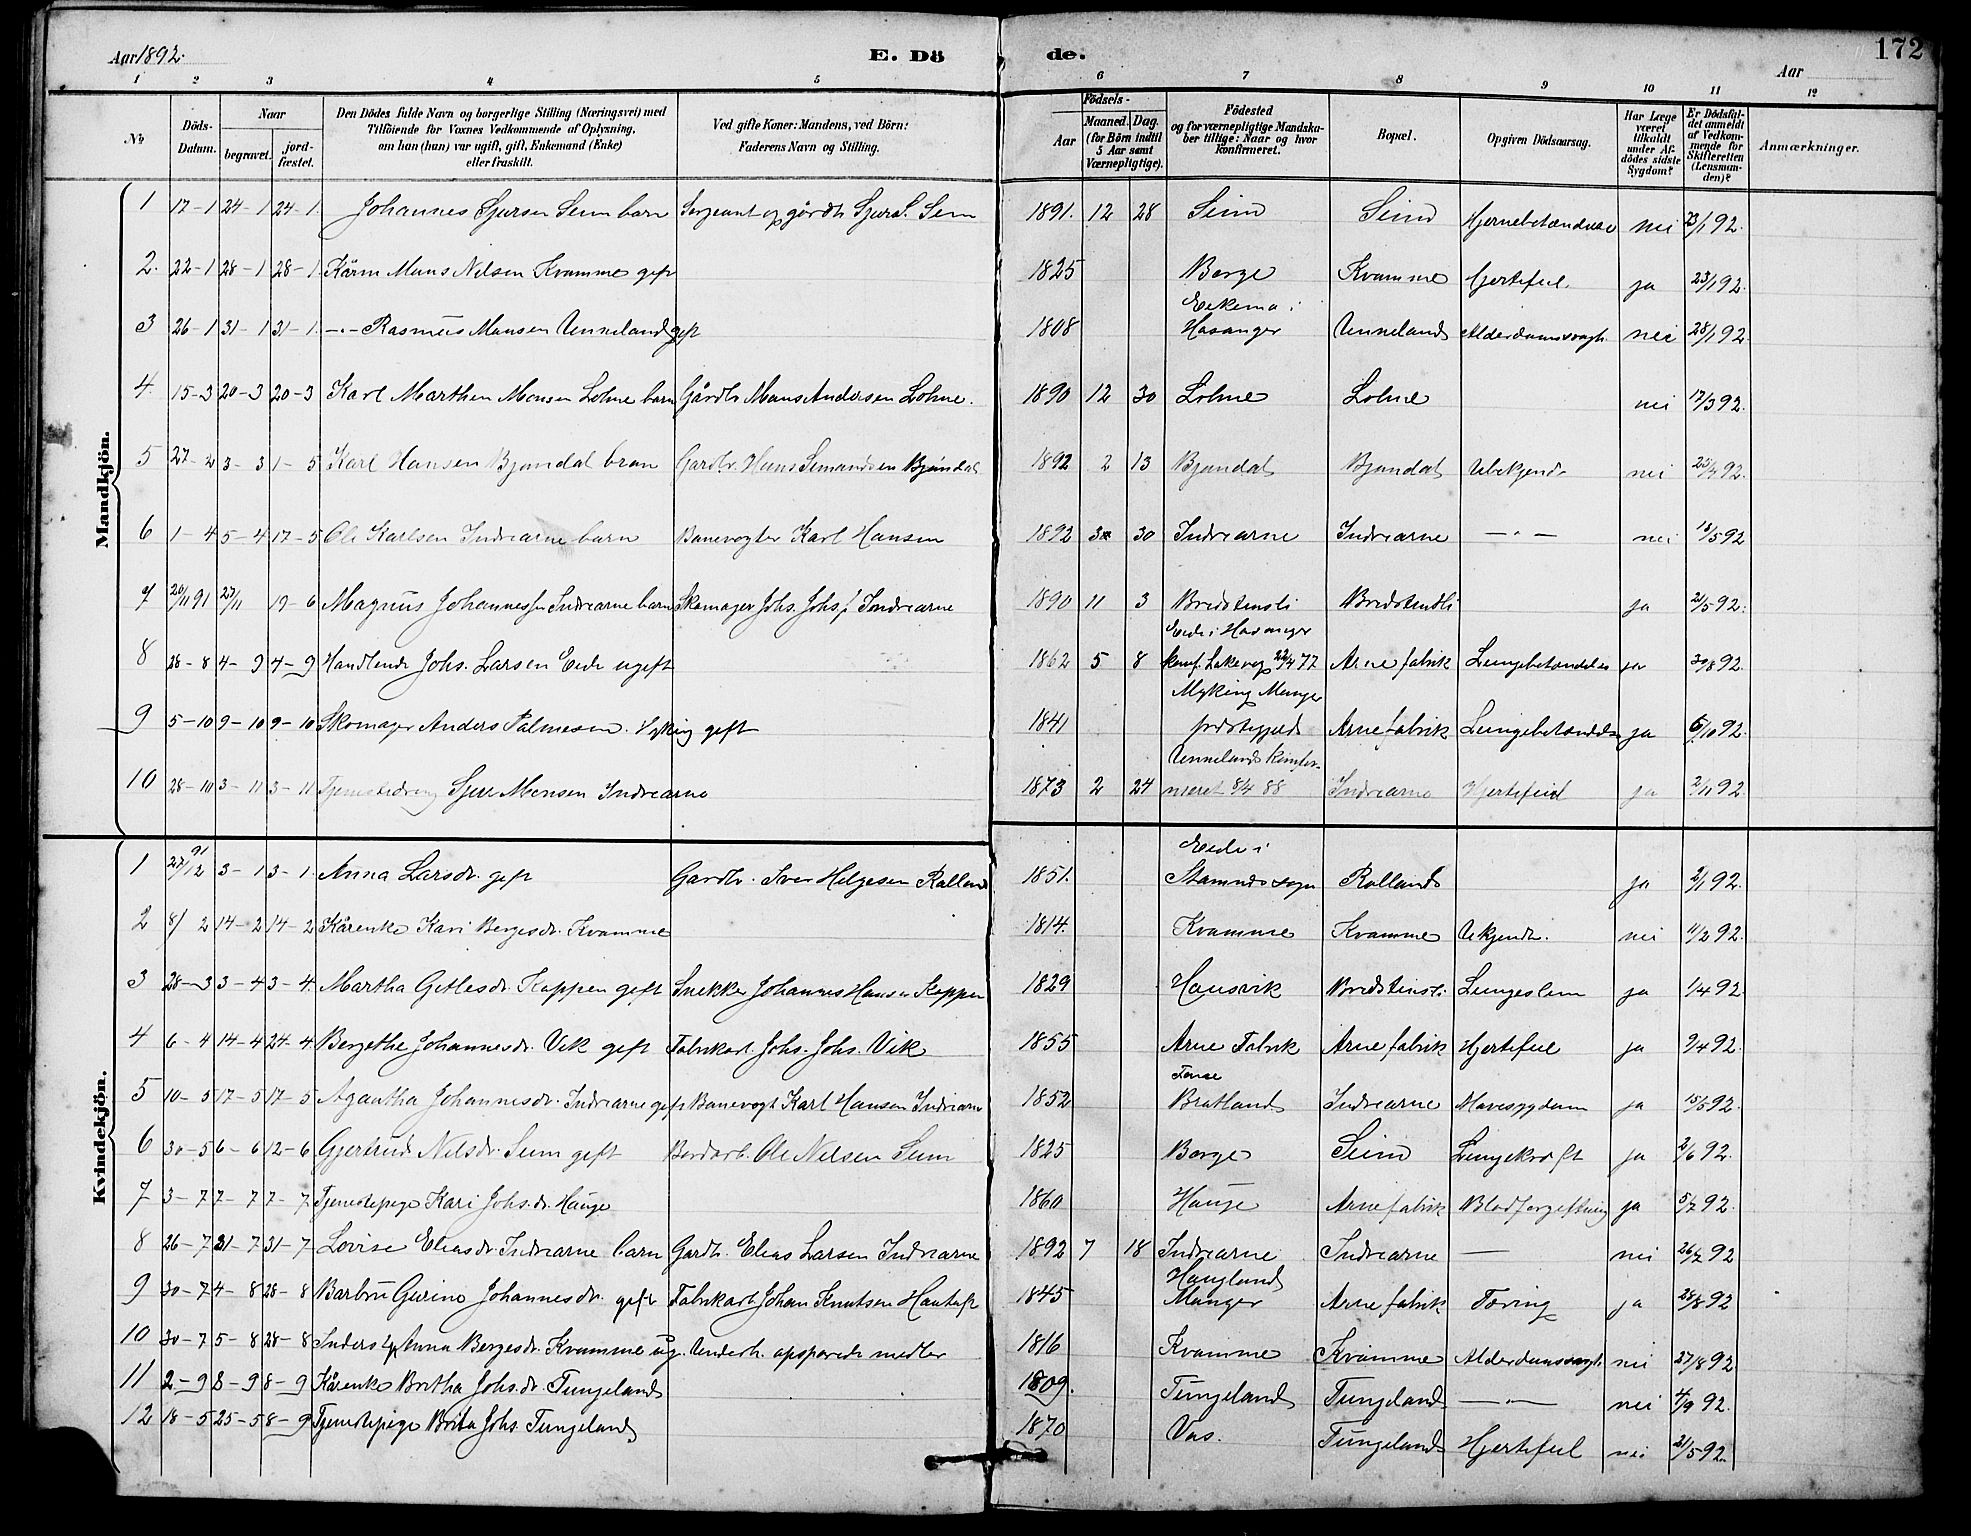 Aar 1892. E. Dö de. Aar 172
1 2 3 4 5 6 7 8 9 10 11 12
No. Döds-Datum. Naar begravet. jordfæstet. Den Dödes fulde Navn og borgerlige Stilling (Næringsvei) med Tilföiende for Voxnes Vedkommende af Oplysning, om han (hun) var ugift, gift, Enkemand (Enke) eller fraskilt. Ved gifte Koner: Mandens, ved Börn: Faderens Navn og Stilling. Födsels- Aar Maaned. Dag. (for Börn indtil 5 Aar samt Værnepligtige). Födested og for værnepligtige Mandskaber tillige: Naar og hvor konfirmeret. Bopæl. Opgiven Dödsaarsag. Har Læge været tilkaldt under Afdödes sidste Sygdom? Er Dödsfaldet anmeldt af Vedkommende for Skifteretten (Lensmanden)? Anmærkninger.
Mandkjön.
1 17-1 24-1 24-1. Johannes Sjursen Seim barn Sergeant og gårdbr Sjur S. Seim 1891. 12 28 Seim Seim Hjernebetændelse nei 23/1 92.
2. 22-1 28-1 28-1. Kårm Mons Nilsen Kvamme gift 1825 Borge Kvamme Hjertefeil. ja 23/1 92.
3 26-1 31-1 31-1. -"- Rasmus Monsen Unneland gift 1808 Eikemo i Hosanger Unneland Alderdomssvagh. nei 28/1 92.
4. 15-3 20-3 20-3 Karl Marthin Monsen Lohne barn Gårdbr Mons Andersen Lohne. 1890 12 30 Lohne Lohne nei 17/3 92.
5 27-2 3-3 1-5 Karl Hansen Bjøndal bran Gardbr. Hans Simundsen Bjøndal 1892 2 13 Bjøndal Bjøndal Ubekjendt nei 92.
6 1-4 5-4 17-5 Ole Karlsen Indrearne barn Banevogter Karl Hansen 1892 3 30 Indrearne Indrearne -"- nei 92
7 20/11 91 27/11 19-6 Magnus Johannesen Indrearne barn Skomager Johs. Johs. Indrearne 1890 11 3 Bredstensli Bredstensli ja 21/5 92.
8 28-8 4-9 4-9 Handlende Johs. Larsen Eide ugift 1862 5 8 Eide i Hosanger konf. 77 Arne fabrik Lungebetændelse ja 30/8 92.
9 5-10 9-10 9-10 Skomager Anders Palmesen Myking gift 1841 Myking Manger Arne fabrik Lungebetændelse ja 6/10 92.
10 28-10 3-11 3-11 Tjenestedreng Sjur Monsen Indrearne 1873 2 24 Unneland konfirmeret 8/4 88 Indrearne Hjertefeil ja 2/11 92.
Kvindekjön.
1 27/12 91 3-1 3-1. Anna Larsdr. gift Gardbr. Iver Helgesen Rolland 1851. Eide i Stamnes sogn Rolland ja 2/1 92.
2 8/2 14-2 14-2 Kårenke Kari Bergesdr. Kvamme 1814. Kvamme Kvamme Ukjendt. nei 11/2 92.
3 28-3 3-4 3-4. Martha Gitlesdr. Koppen gift Snekker Johannes Hansen Koppen 1829 Hausvik Bredstensli Lungeslem ja 1/4 92.
4 6-4 14-4 24-4 Bergithe Johannesdr. Vik gift Fabrikarb. Johs. Johs. Vik 1855 Arne Fabrik Arne fabrik Hjertefeil ja 9/4 92.
5 10-5 17-5 17-5 Agaatha Johannesdr. Indrearne gift Banevogt Karl Hansen Indrearne 1852 Bratland Indrearne Mavesygdom ja 15/5 92.
6 30-5 6-6 12-6 Gjertrud Nilsdr. Seim gift Bordarb. Ole Nilsen Seim 1825 Borge Seim Lungekræft ja 2/6 92.
7 3-7 7-7 7-7 Tjenestepige Kari Johs.dr. Hauge 1860 Hauge Arne fabrik Blodforgiftning ja 5/7 92.
8 26-7 31-7 31-7 Lovise Eliasdr. Indrearne barn Gardbr. Elias Larsen Indrearne 1892 7 18 Indrearne Indrearne — nei 26/7 92
9 30-7 4-8 28-8 Barbru Gurine Johannesdr. gift Fabrikarb. Johan Knutsen 1845 Haugland Manger Arne fabrik Tæring ja 28/8 92
10 30-7 5-8 28-8 Inderst Anna Bergesdr. Kvamme ug. Underh. opsparede midler 1816 Kvamme Kvamme Alderdomssvagh. nei 27/8 92
11 2-9 8-9 8-9 Kårenke Britha Johs.dr. Tungeland 1809. Tungeland Tungeland -"- nei 4/9 92.
12 18-5 25-5 8-9 Tjenestepige Brita Johs. Tungeland 1870 Vos. Tungeland Hjertefeil nei 21/5 92.